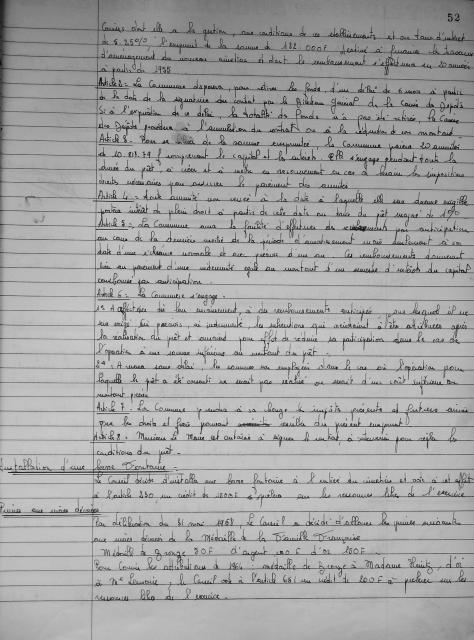 52
dont elle a la gestion, aux conditions de ces établissements et au taux d'intérêt
de 5.25% l'emprunt de la somme de 182 000F destiné à financer les travaux
d'aménagement du nouveau cimetière et dont le remboursement s'effectuera en 20 années
à partir de
Article 2 - La Commune disposera, pour retirer les fonds, d'un délai de 6 mois à partir
de la date de la signature du contrat par le Directeur Général de la Caisse des Dépôts
Si à l'expiration de ce délai la totalité des fonds n'a pas été retirée, la Caisse
des Dépôts procédera à l'annulation du contrat ou à la réduction de son montant.
Article 3 - Pour se de la somme empruntée, la Commune paiera 20 annuités
de comprenant le capital et les intérêts. Elle s'engage pendant toute la
durée du prêt à créer et à mettre en recouvrement en cas de besoin les impositions
directes nécessaires pour assurer le paiement des annuités
Article 4 - Toute annuité non versée à la date à laquelle elle sera devenue exigible
portera intérêt de plein droit à partir de cette date au taux du prêt majoré de 1%
Article 5 - La Commune aura la faculté d'effectuer des remboursements par anticipation
au cours de la dernière moitié de la période d'amortissement mais seulement à la
date d'une échéance normale et avec préavis d'un an. Ces remboursements donneront
lieu au paiement d'une indemnité égale au montant d'un semestre d'intérêts du capital
remboursé par anticipation.
Article 6 - La Commune s'engage.
1° A effectuer des remboursements anticipés, pour lesquels il ne
sera exigé ni préavis, ni indemnité les subventions qui viendraient à être attribuées après
la réalisation du prêt et auraient pour effet de réduire sa participation dans le coût de
l'opération à une somme inférieure au montant du prêt.
2° - A verser sans délai les sommes non employées dans le cas où l'opération pour
laquelle le prêt a été consenti ne serait pas réalisée ou serait d'un coût inférieur au
montant prévu
Article 7 - La Commune prendra à sa charge les impôts présents et futurs ainsi
que les droits et frais pouvant résulter du présent emprunt.
Article 8 - Monsieur le Maire est autorisé à signer le contrat à intervenir pour régler les
conditions du prêt.
Installation d'une borne fontaine -
Le Conseil décide d'installer une borne fontaine à l'entrée du cimetière et vote à cet effet
à l'article 230 un crédit de à prélever sur les ressources libres de l'exercice.
Primes aux mères décorées
Par délibération du 31 mai le Conseil a décidé d'allouer les primes suivantes
aux mères décorées de la Médaille de la Famille Française
Médaille de bronze 50F d'argent 100F d'or 200F.
Pour les attributions de médaille de bronze à Madame d'or
à Mme le Conseil vote à l'article 651 un crédit de 200F à prélever sur les
ressources libres de l'exercice.